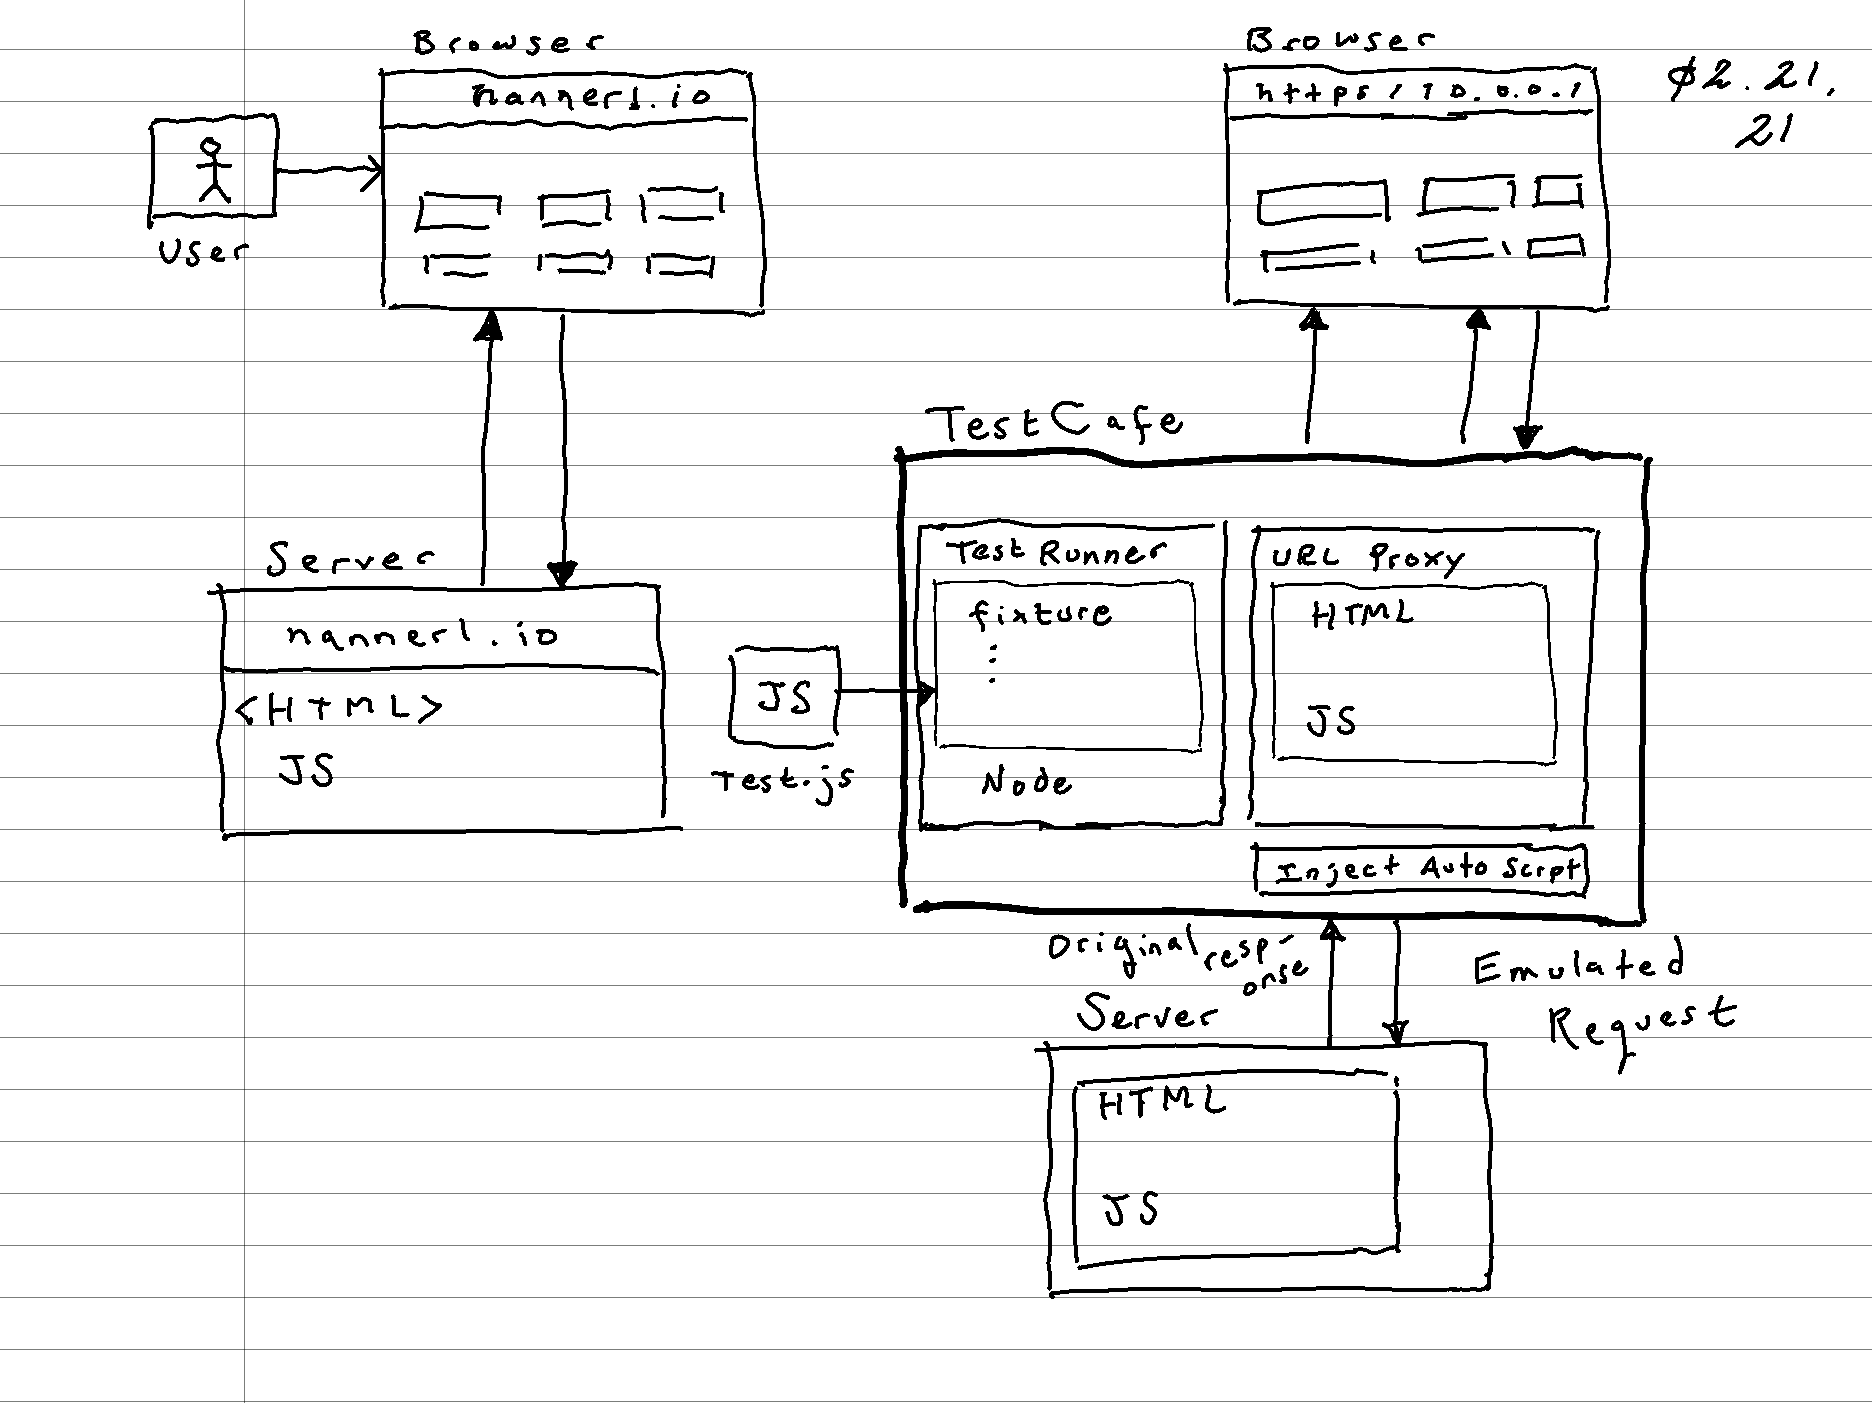 Browser
nannerl.io
User
Server
nannerl.io
<HTML>
JS
Browser
https/10.0.0.1
02.21.
21
TestCafe
Test Runner
fixture
⋮
Node
JS
Test.js
URL Proxy
HTML
JS
Inject Auto Script
Original resp-
onse
Emulated
Request
Server
HTML
JS